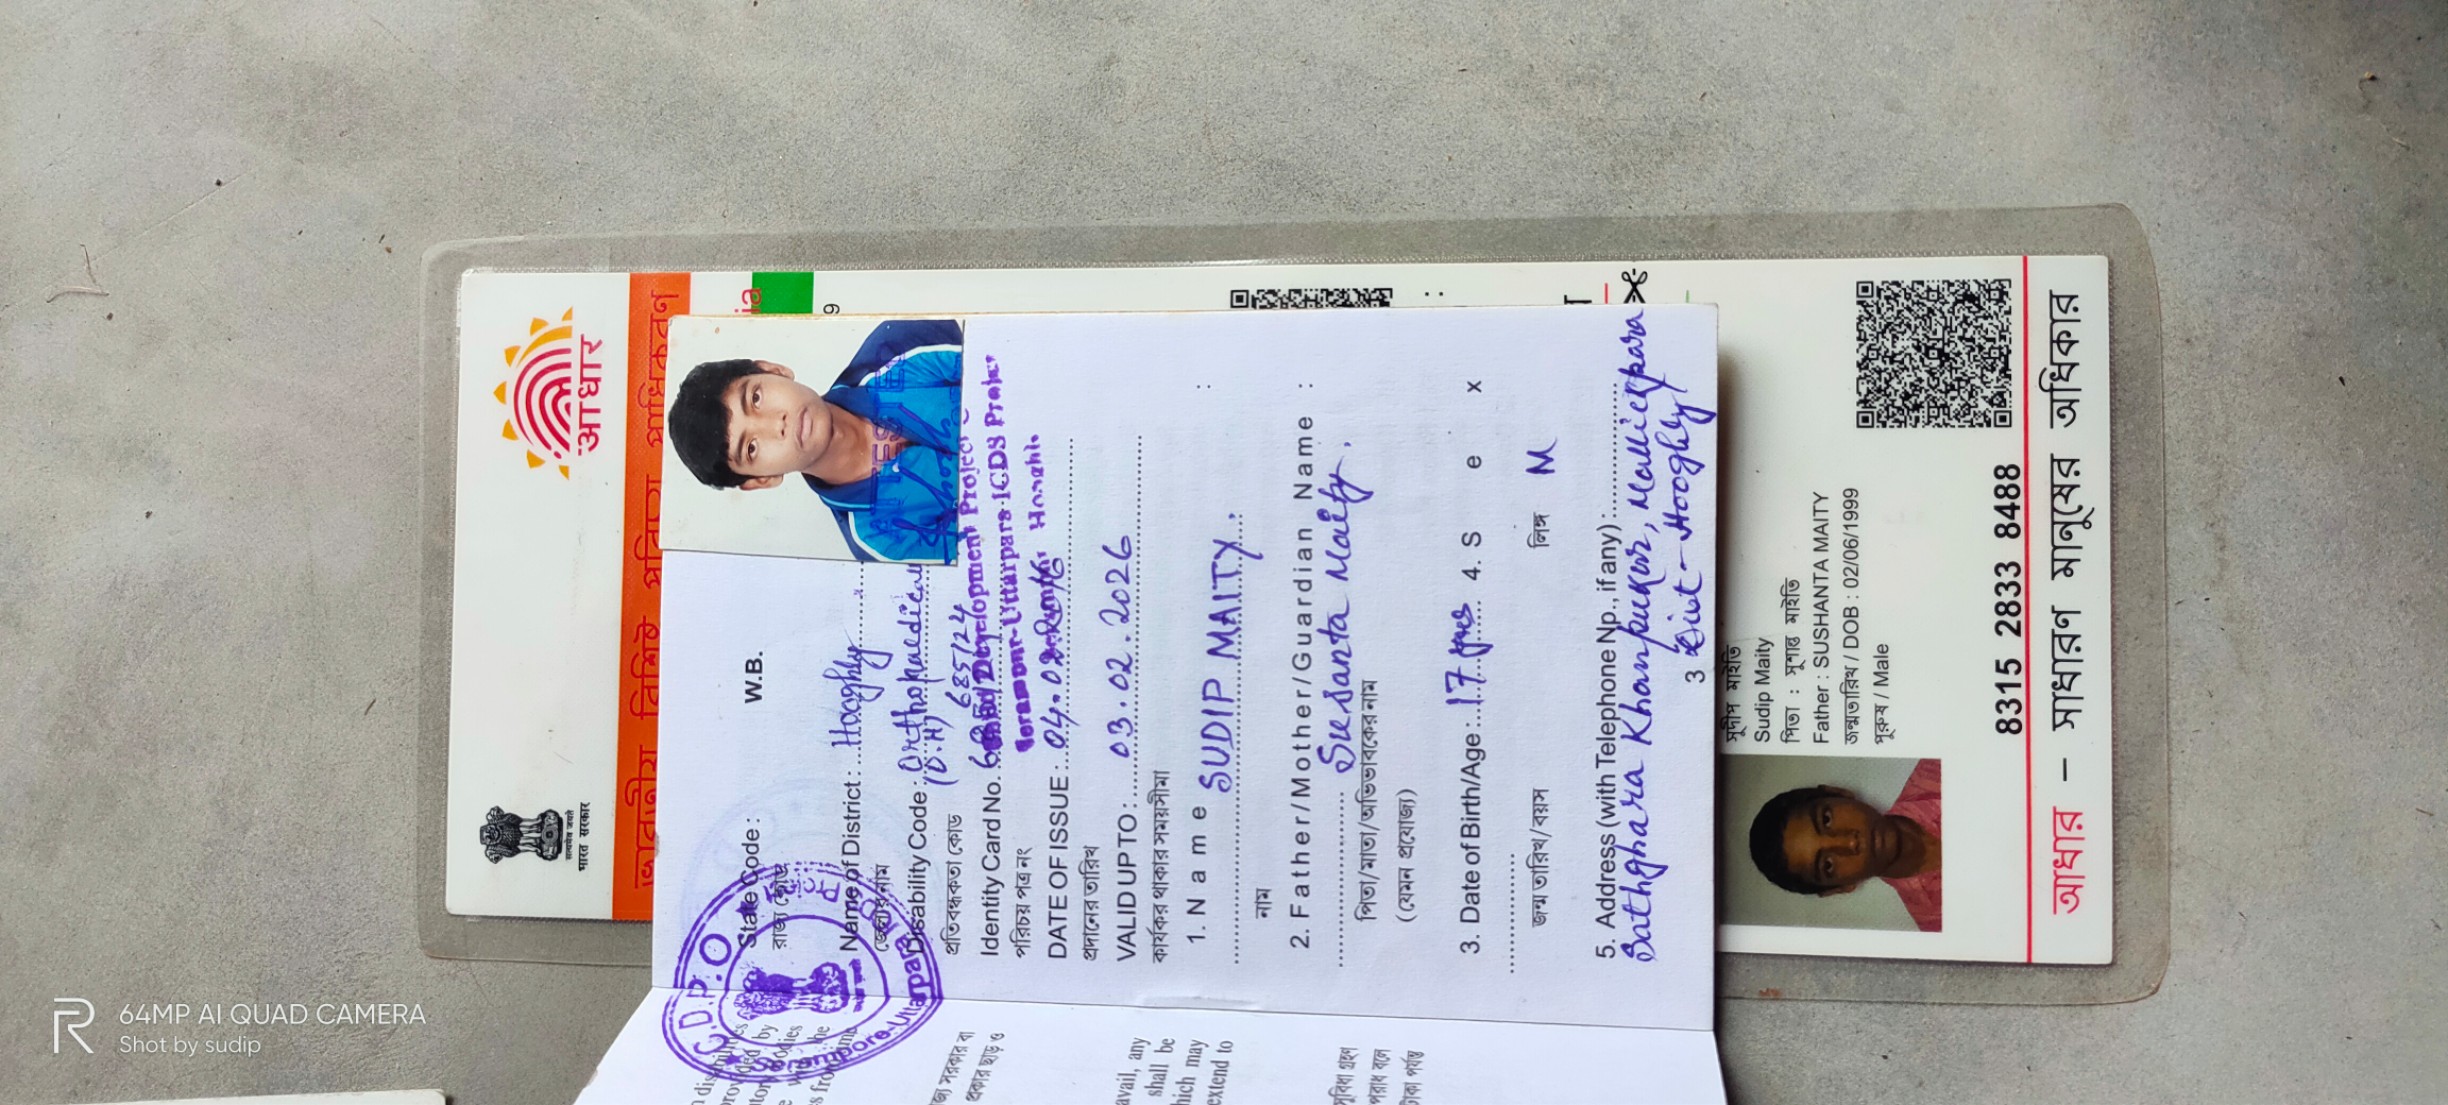 भारत सरकार
आधार
ভারতীয় বিশিষ্ট পরিচয় প্রাধিকরণ
State Code : W.B.
রাজ্য কোড
Name of District : Hooghly
জেলার নাম
Disability Code : Orthopaedically
প্রতিবন্ধকতা কোড (O.H) 685/24
Identity Card No.
পরিচয় পত্র নং
Child Development Project
Serampore-Uttarpara ICDS Project
Hooghly
DATE OF ISSUE : 04.02.2016
প্রদানের তারিখ
VALID UPTO : 03.02.2026
কার্যকর থাকার সময়সীমা
1. Name :
SUDIP MAITY.
নাম
2. Father/Mother/Guardian Name :
Susanta Maity.
পিতা/মাতা/অভিভাবকের নাম
(যেমন প্রযোজ্য)
3. Date of Birth/Age : 17 yrs 4. Sex
জন্ম তারিখ/বয়স লিঙ্গ M
5. Address (with Telephone Np., if any) :
Bathghara Khanpukur, Mallickpara
Dist - Hooghly
3
ATTESTED
C.D.P.O
Serampore-Uttarpara
সুদীপ মাইতি
Sudip Maity
পিতা : সুশান্ত মাইতি
Father : SUSHANTA MAITY
জন্মতারিখ / DOB : 02/06/1999
পুরুষ / Male
8315 2833 8488
আধার – সাধারণ মানুষের অধিকার
provided by
avail, any
shall be
which may
extend to
64MP AI QUAD CAMERA
Shot by sudip